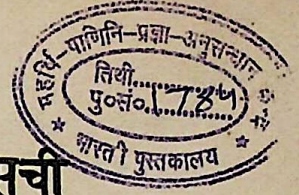 महर्षि-पाणिनि-प्रज्ञा-अनुसन्धान
तिथी..........
पु०सं० 1784
भारती पुस्तकालय
सूची